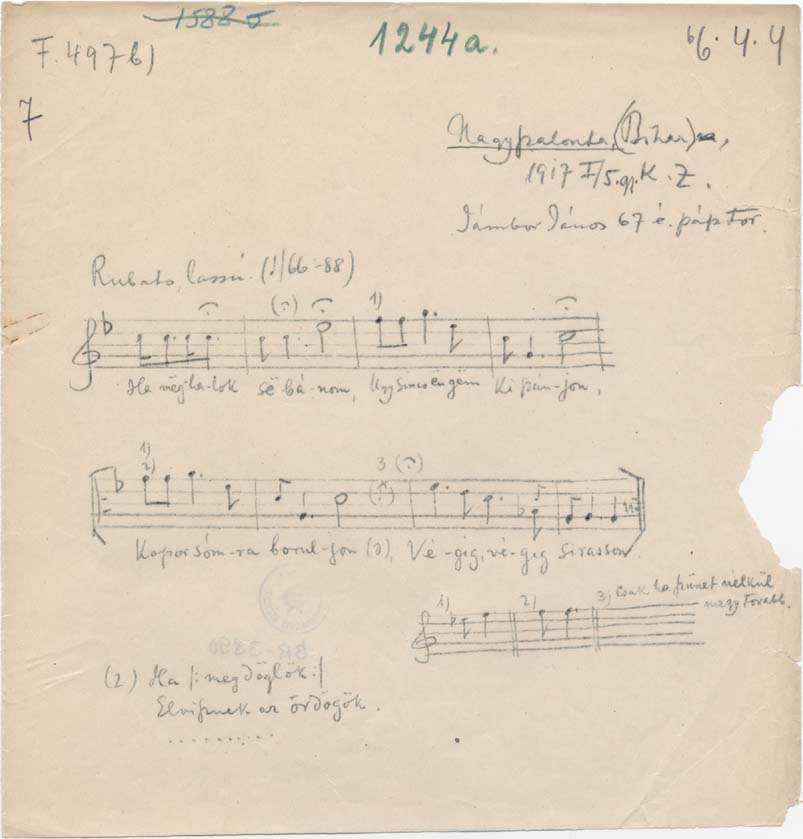 1588
1244a.
6. 4. 4
F. 497b)
7
Nagyszalonta, (Bihar)
1917 I/5. gy. K. Z.
Jámbor János 67 é. pásztor.
Rubato, lassú. (♩/66-88)
1)
Ha mëgha-lok së bá-nom, Ugysincs ёngёm Ki szán-jon,
1)
2)
3
Koporsóm-ra borul-jon (ə), Vé-gig, vé-gig sirasson.
1) 2) 3) csak ha szünet nélkül
megy tovább.
BR-3890
(2) Ha |: megdöglök :|
Elvisznek az ördögök.
..........